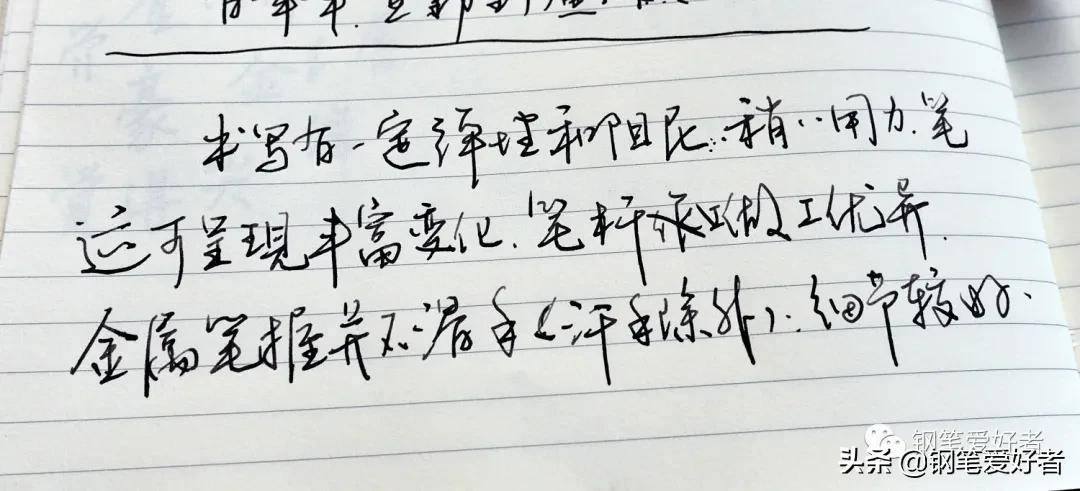 书写有一定弹性和阻尼，稍稍用力，笔
迹可呈现丰富变化，笔杆做工优异，
金属笔握并不滑手（汗手除外），细节较好。
钢笔爱好者
头条 @钢笔爱好者